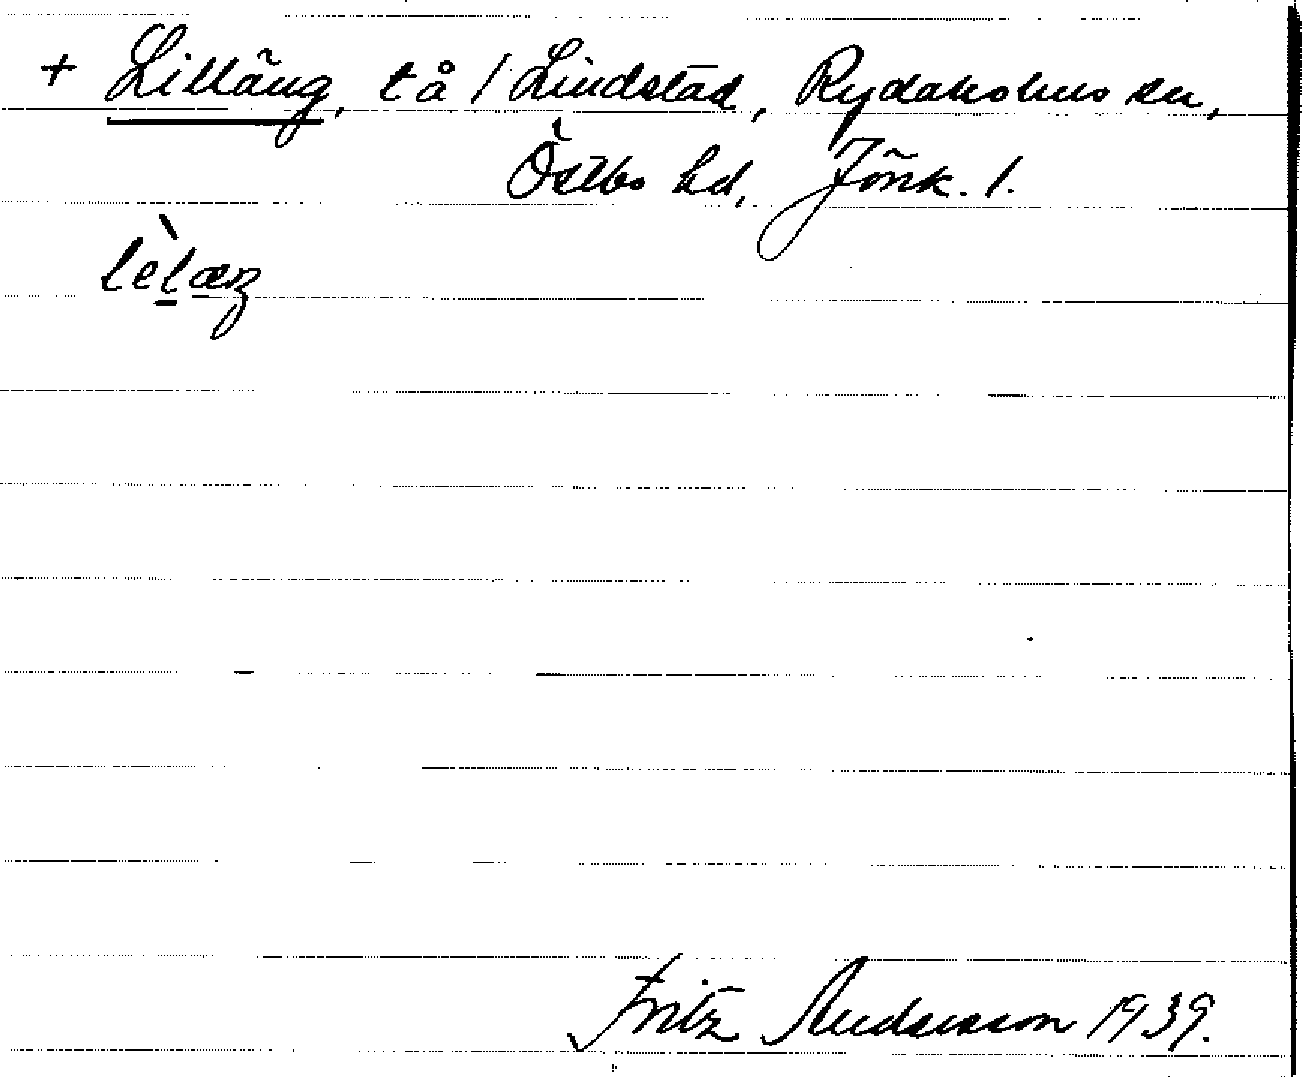 + Lilläng, tå / Lindstad, Rydaholms sn,
Östbo hd, Jönk. l.
lèlæŋ
Fritz Andersson 1939.